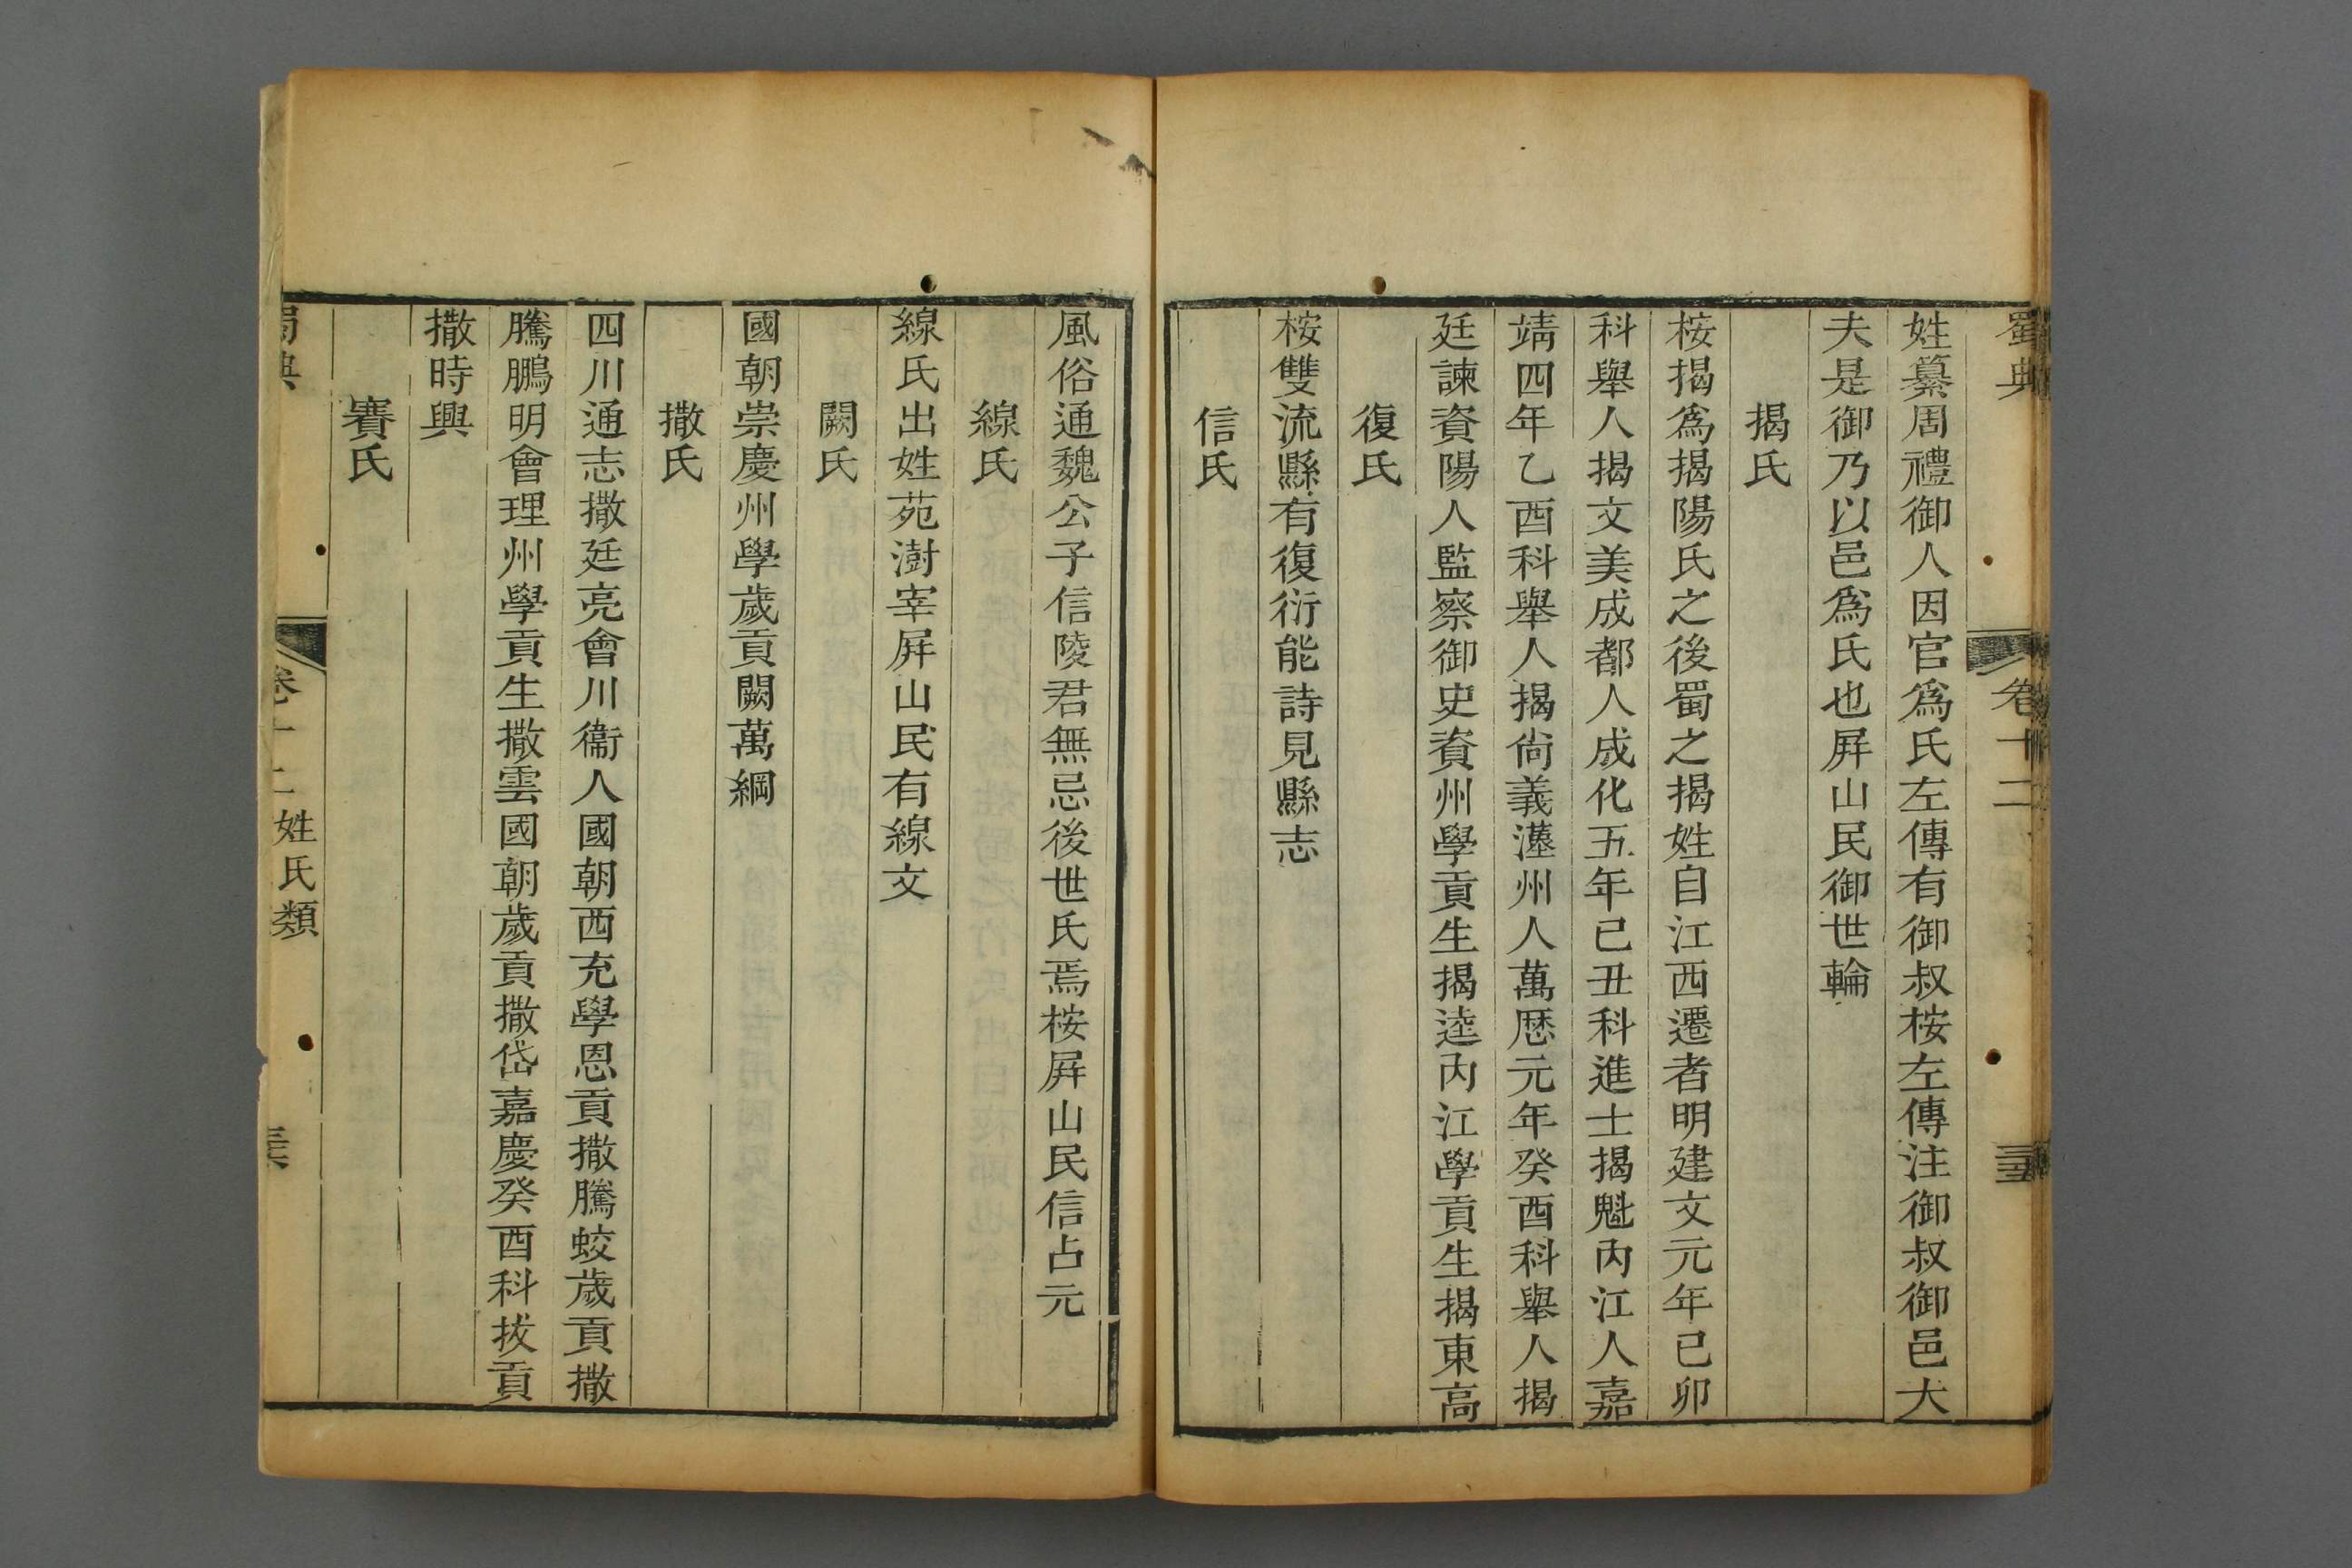 蜀典
卷十二
姓纂周禮御人因官爲氏左傳有御叔桉左傳注御叔御邑大
夫是御乃以邑爲氏也屛山民御世輪
揭氏
桉揭爲揭陽氏之後蜀之揭姓自江西遷者明建文元年已卯
科舉人揭文美成都人成化五年已丑科進士揭魁內江人嘉
靖四年乙酉科舉人揭尙義蓬州人萬厯元年癸酉科舉人揭
廷諫資陽人監察御史資州學貢生揭逵內江學貢生揭東高
復氏
桉雙流縣有復衍能詩見縣志
信氏
風俗通魏公子信陵君無忌後世氏焉桉屛山民信占元
線氏
線氏出姓苑澍宰屛山民有線文
闕氏
國朝崇慶州學歲貢闕萬綱
撒氏
四川通志撒廷亮會川衞人國朝西充學恩貢撒騰蛟歲貢撒
騰鵬明會理州學貢生撒雲國朝歲貢撒岱嘉慶癸酉科拔貢
撒時興
賽氏
蜀典
卷十二 姓氏類